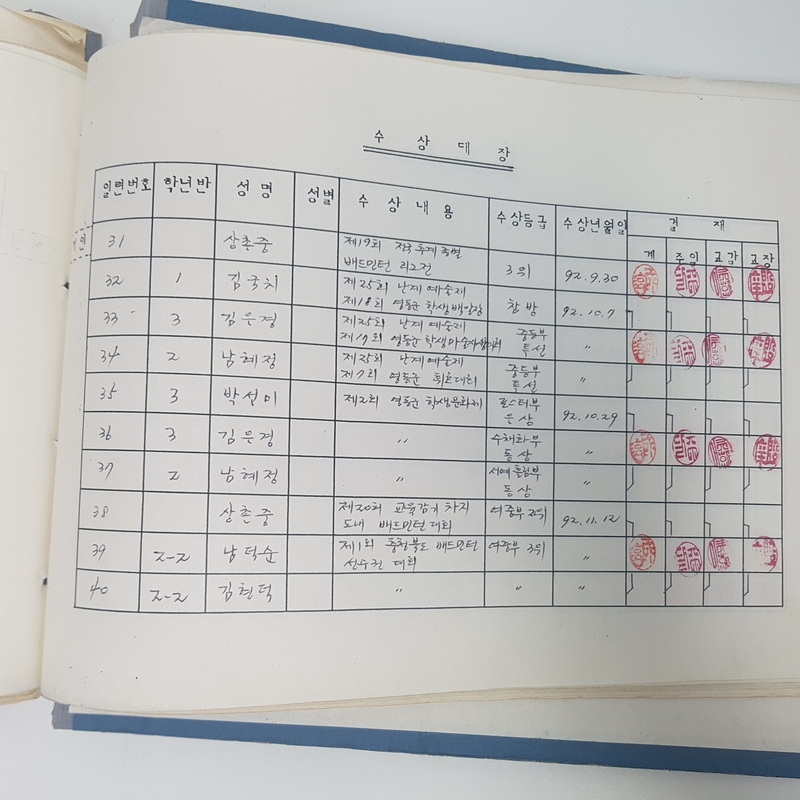 수 상 대 장
일련번호 학년반 성 명 성별 수 상 내 용 수상등급 수상년월일 결 재
계 주임 교감 교장
31 상촌중 제19회 전국추계
배드민턴 리그전 3위 92.9.30
32 1 김국치 제25회 난계예술제
제18회 영동군 학생백일장 참방 92.10.7
33 3 김은경 제25회 난계예술제 중등부
영동군 학생미술 특선 〃
34 2 남혜정 제25회 난계예술제 중등부
영동군 휘호대회 특선 〃
35 3 박선미 제2회 영동군 학생문화제 포스터부
은상 92.10.29
36 3 김은경 〃 수채화부
동상 〃
37 2 남혜정 〃 서예
동상 〃
38 상촌중 제20회 교육감기 차지
도내 배드민턴대회 여중부 2위 92.11.12
39 2-2 남덕순 제1회 충청북도 배드민턴
선수권 대회 여중부 3위 〃
40 2-2 김현덕 〃 〃 〃